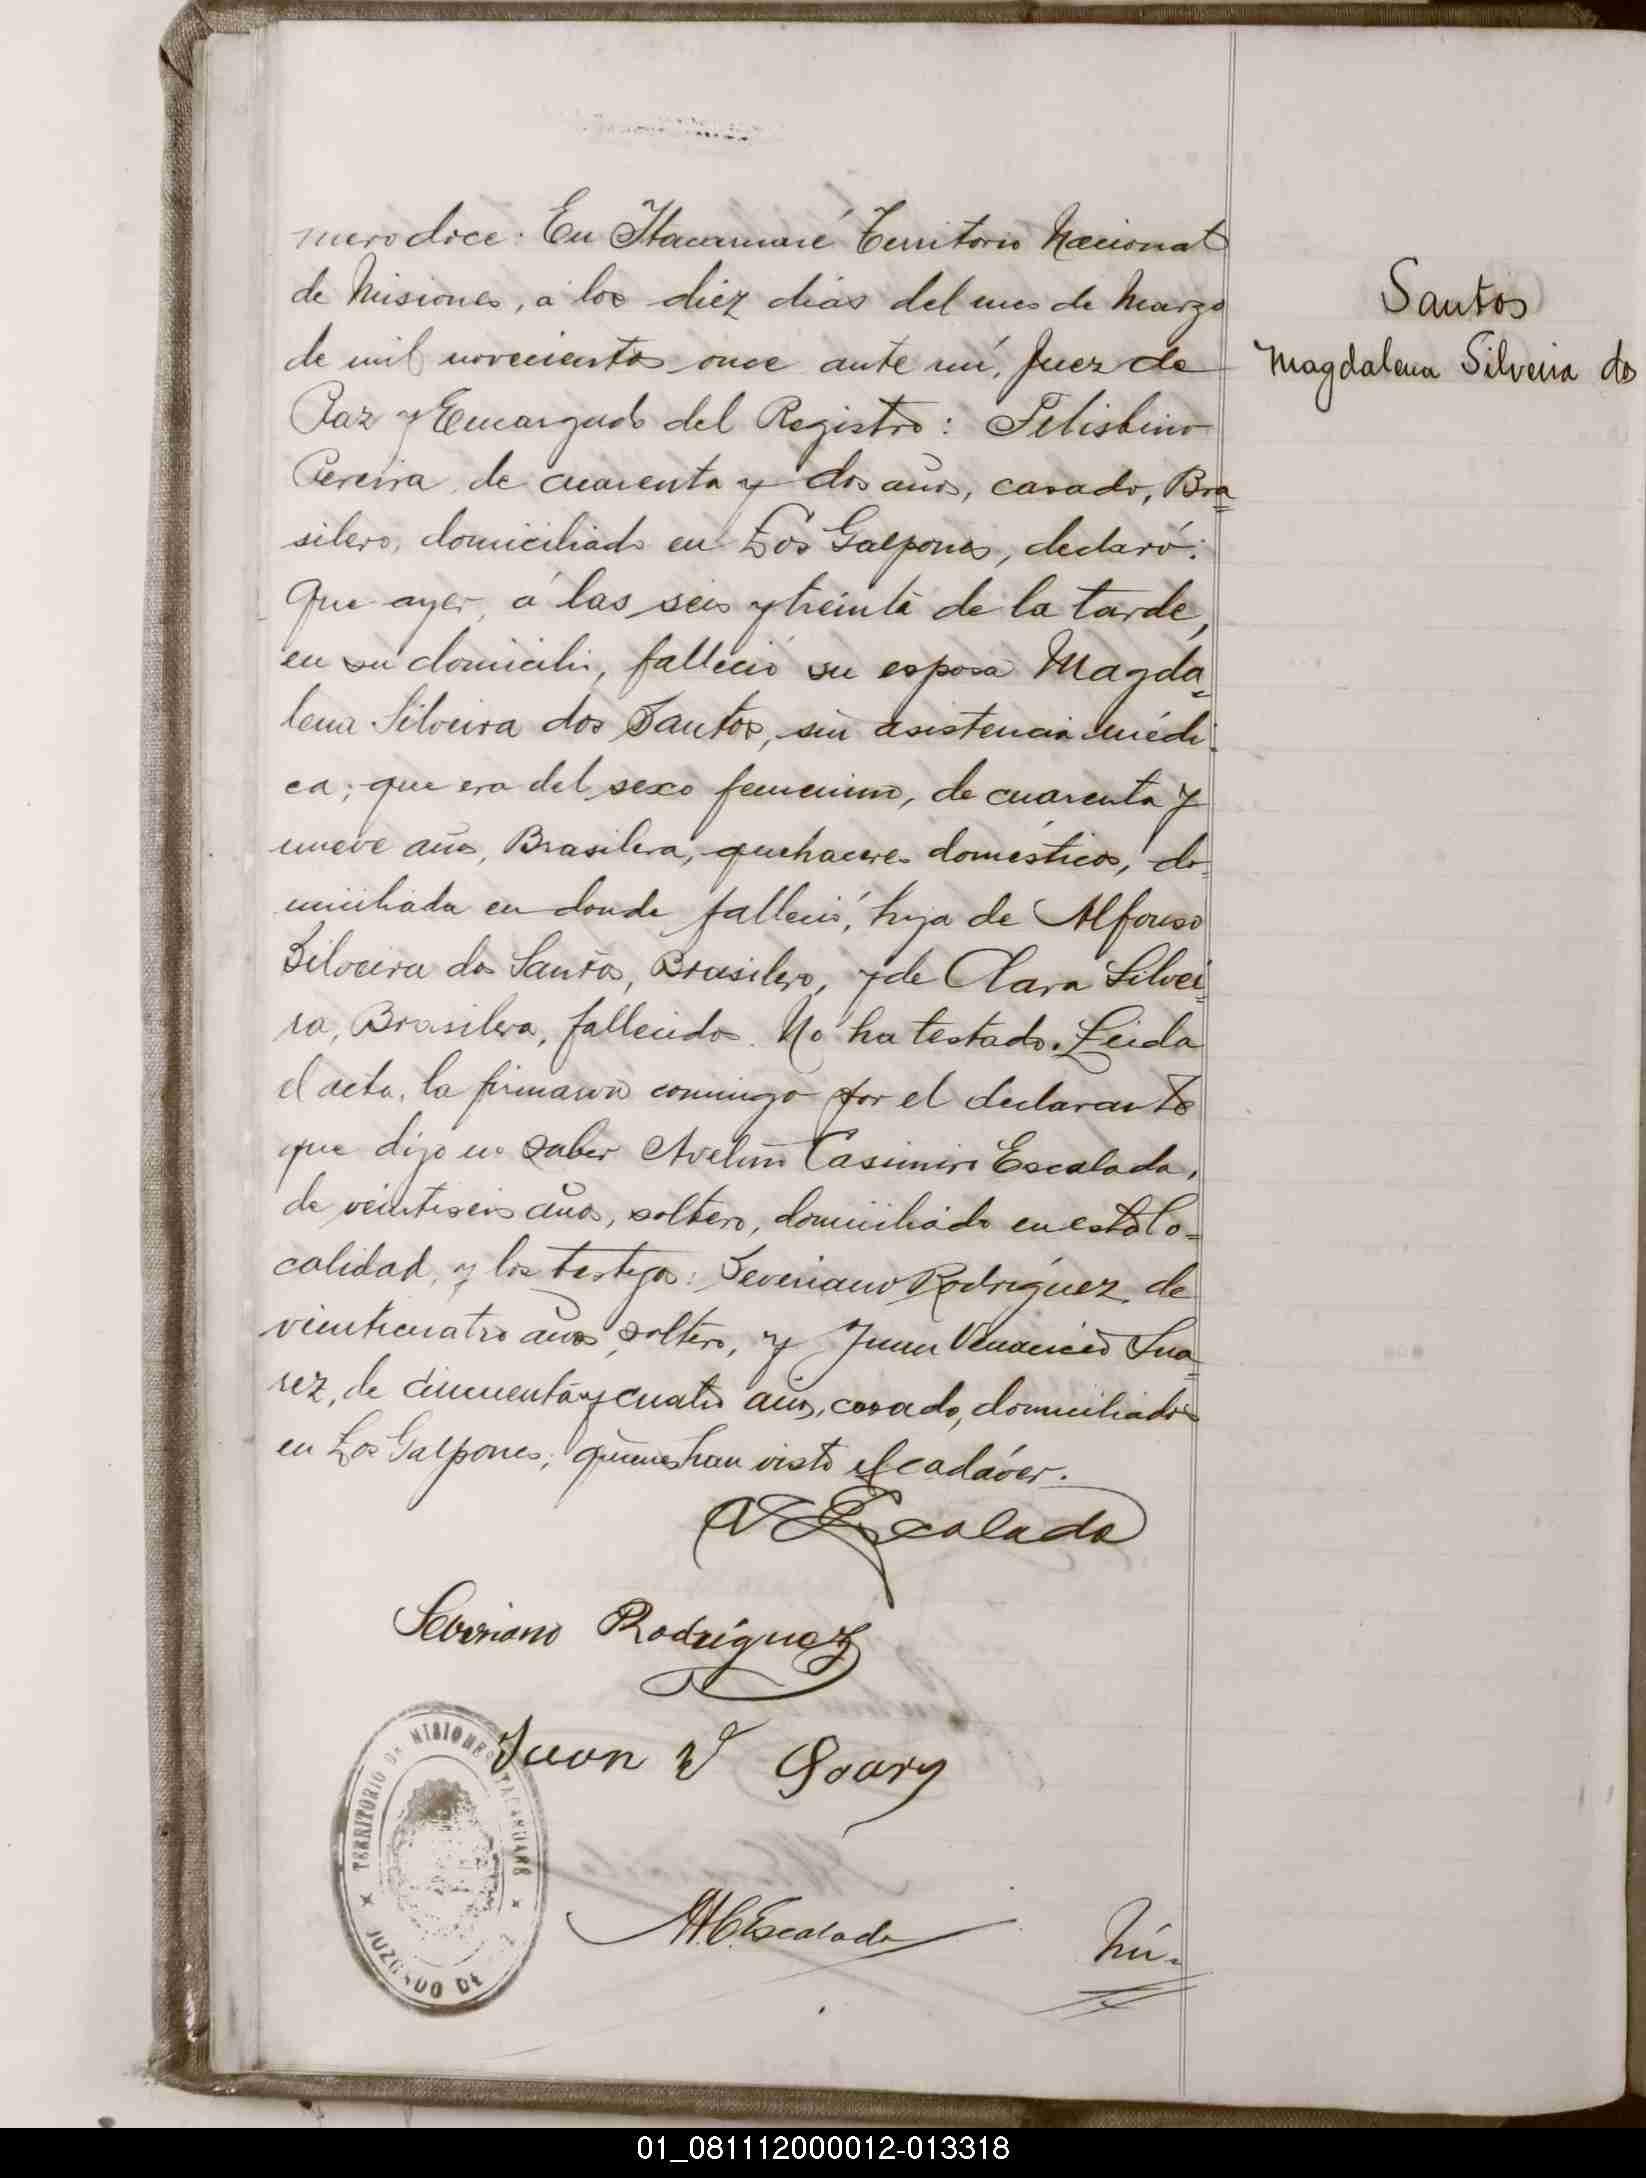 mero doce: En Itacaruaré Territorio Nacional
de Misiones, á los diez dias del mes de Marzo
de mil novecientos once ante mí, Juez de
Paz y Encargado del Registro: Felisbino
Pereira, de cuarenta y dos años, casado, Bra=
silero, domiciliado en Los Galpones, declaró:
Que ayer, á las seis y treinta de la tarde,
en su domicilio, falleció su esposa Magda=
lena Silveira dos Santos, sin asistencia médi-
ca; que era del sexo femenino, de cuarenta y
nueve años, Brasilera, quehaceres domésticos, do=
miciliada en donde falleció, hija de Alfonso
Silveira dos Santos, Brasilero, y de Clara Silvei=
ra, Brasilera, fallecidos. No ha testado. Leida
el acta, la firmaron conmigo por el declarante
que dijo no saber Avelino Casimiro Escalada,
de veintiseis años, soltero, domiciliado en esta lo=
calidad, y los testigos: Severiano Rodríguez, de
veinticuatro años, soltero, y Juan Venancio Sua=
rez, de cincuenta y cuatro años, casado, domiciliados
en Los Galpones; quienes han visto el cadáver.
Escalada
Severiano Rodríguez
Juan V Soary
Escalada
Nú=
Santos
Magdalena Silveira dos
TERRITORIO DE MISIONES ITACARUARE
JUZGADO DE
01_081112000012-013318